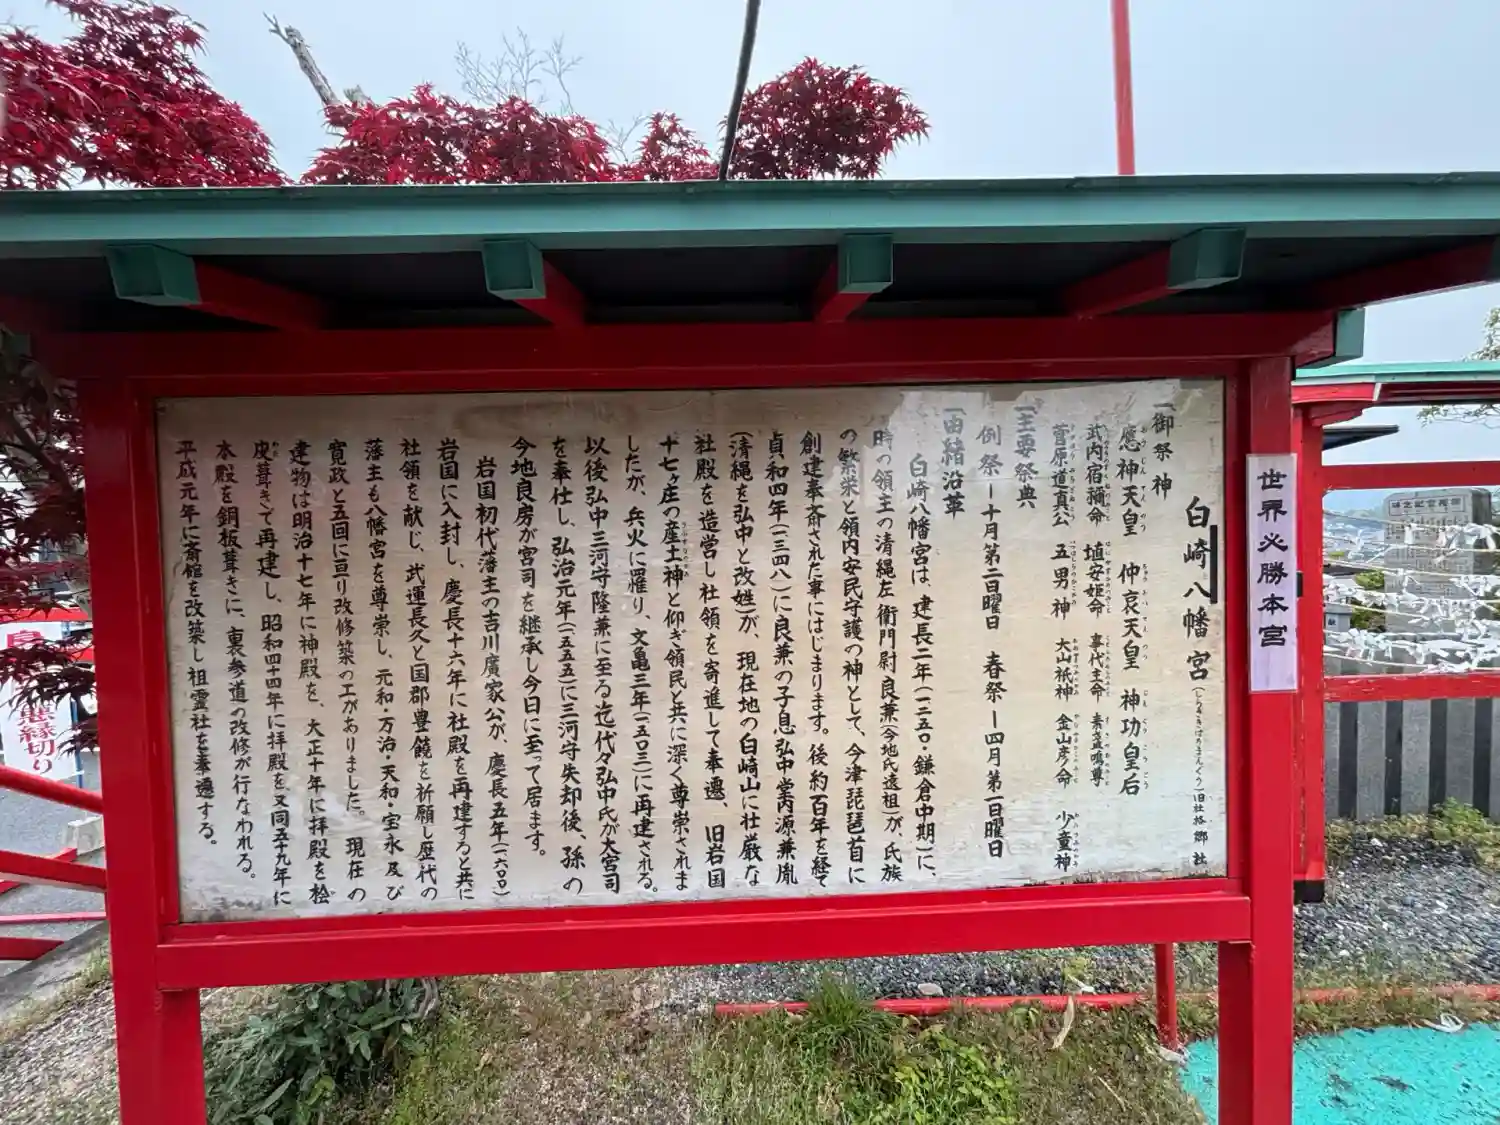 世界必勝本宮
白崎八幡宮(しらさきはちまんぐう)旧社格 郷社
一、御祭神
應神天皇 仲哀天皇 神功皇后
武内宿禰命 埴安姫命 事代主命 素盞嗚尊
菅原道真公 五男神 大山祇神 金山彦命 少童神
一、主要祭典
例祭ー十月第二日曜日 春祭ー四月第一日曜日
一、由緒沿革
白崎八幡宮は、建長二年(一二五〇・鎌倉中期)に、
時の領主の清縄左衛門尉良兼(今地氏遠祖)が、氏族
の繁栄と領内安民守護の神として、今津琵琶首に
創建奉斎された事にはじまります。後約百年を経て
貞和四年(一三四八)に良兼の子息弘中兼胤
(清縄を弘中と改姓)が、現在地の白崎山に社厳な
社殿を造営し社領を寄進して奉遷、旧岩国
十七ヶ庄の産土神と仰ぎ領民と共に深く尊崇されま
したが、兵火に罹り、文亀三年(一五〇三)に再建される。
以後弘中三河守隆兼に至る迄代々弘中氏が大宮司
を奉仕し、弘治元年(一五五五)に三河守失却後、孫の
今地良房が宮司を継承し今日に至って居ます。
岩国初代藩主の吉川廣家公が、慶長五年(一六〇〇)
岩国に入封し、慶長十六年に社殿を再建すると共に
社領を献じ、武運長久と国郡豊饒を祈願し歴代の
藩主も八幡宮を尊崇し、元和・万治・天和・宝永及び
寛政と五回に亘り改修築の工がありました。現在の
建物は明治十七年に神殿を、大正十年に拝殿を桧
皮葺きで再建し、昭和四十四年に拝殿を又同五十九年に
本殿を銅板葺きに、裏参道の改修が行なわれる。
平成元年に斎館を改築し祖霊社を奉遷する。
悪縁切り